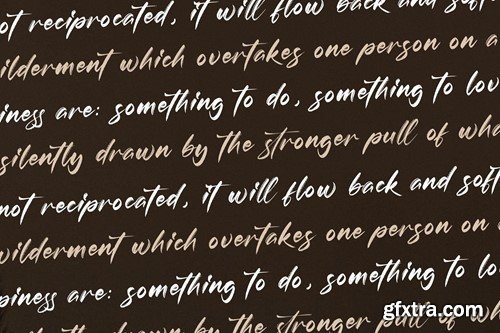 not reciprocated, it will flow back and soft
wilderment which overtakes one person on a
piness are: something to do, something to lov
silently drawn by the stronger pull of wha
not reciprocated, it will flow back and soft
wilderment which overtakes one person on a
piness are: something to do, something to lo
drawn by the stronger pull of w
gfxtra.com